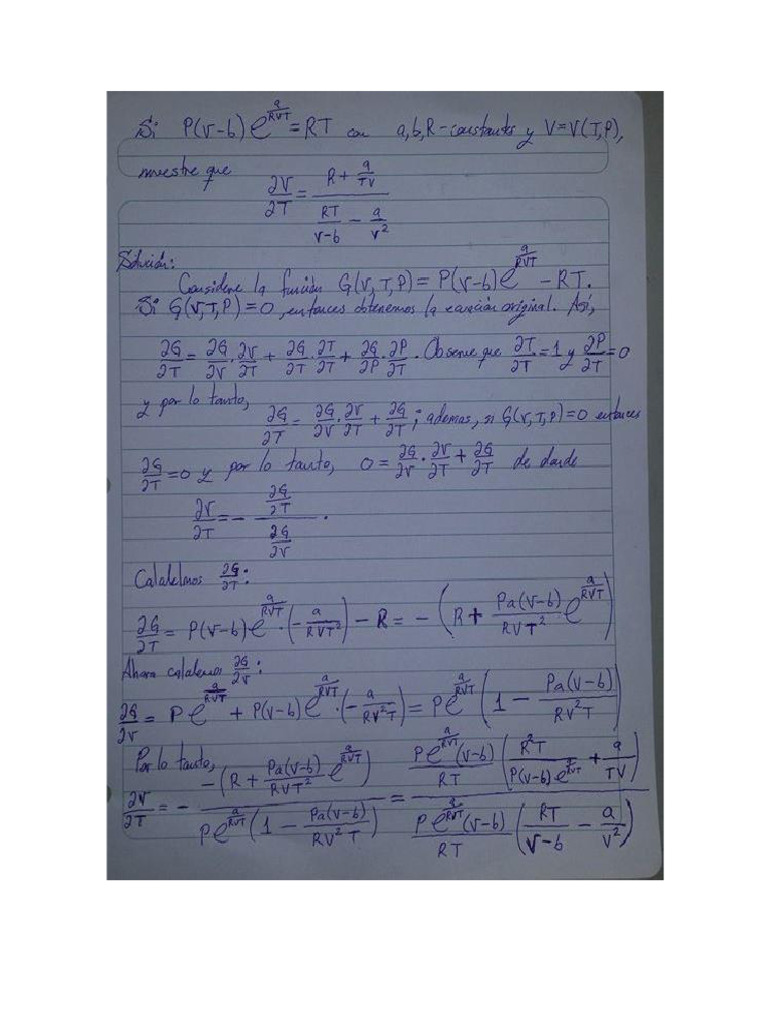 Si P(V-b)e^{a/RVT} = RT con a,b,R-constantes y V=V(T,P),
muestre que ∂V/∂T = (R + a/TV)/(RT/(V-b) - a/V²)
Solución:
Considere la función G(V,T,P) = P(V-b)e^{a/RVT} - RT.
Si G(V,T,P)=0, entonces obtenemos la ecuación original. Así,
∂G/∂T = ∂G/∂V · ∂V/∂T + ∂G/∂T · ∂T/∂T + ∂G/∂P · ∂P/∂T. Observe que ∂T/∂T = 1 y ∂P/∂T = 0
y por lo tanto,
∂G/∂T = ∂G/∂V · ∂V/∂T + ∂G/∂T; además, si G(V,T,P)=0 entonces
∂G/∂T = 0 y por lo tanto, 0 = ∂G/∂V · ∂V/∂T + ∂G/∂T de donde
∂V/∂T = - (∂G/∂T)/(∂G/∂V).
Calculemos ∂G/∂T:
∂G/∂T = P(V-b)e^{a/RVT} · (-a/RVT²) - R = -(R + Pa(V-b)/RVT² e^{a/RVT})
Ahora calculemos ∂G/∂V:
∂G/∂V = Pe^{a/RVT} + P(V-b)e^{a/RVT} · (-a/RV²T) = Pe^{a/RVT}(1 - Pa(V-b)/RV²T)
Por lo tanto,
∂V/∂T = - (-(R + Pa(V-b)/RVT² e^{a/RVT}))/(Pe^{a/RVT}(1 - Pa(V-b)/RV²T)) = (Pe^{a/RVT}(V-b)/RT (R²T/P(V-b)e^{a/RVT} + a/TV))/(Pe^{a/RVT}(V-b)/RT (RT/(V-b) - a/V²))